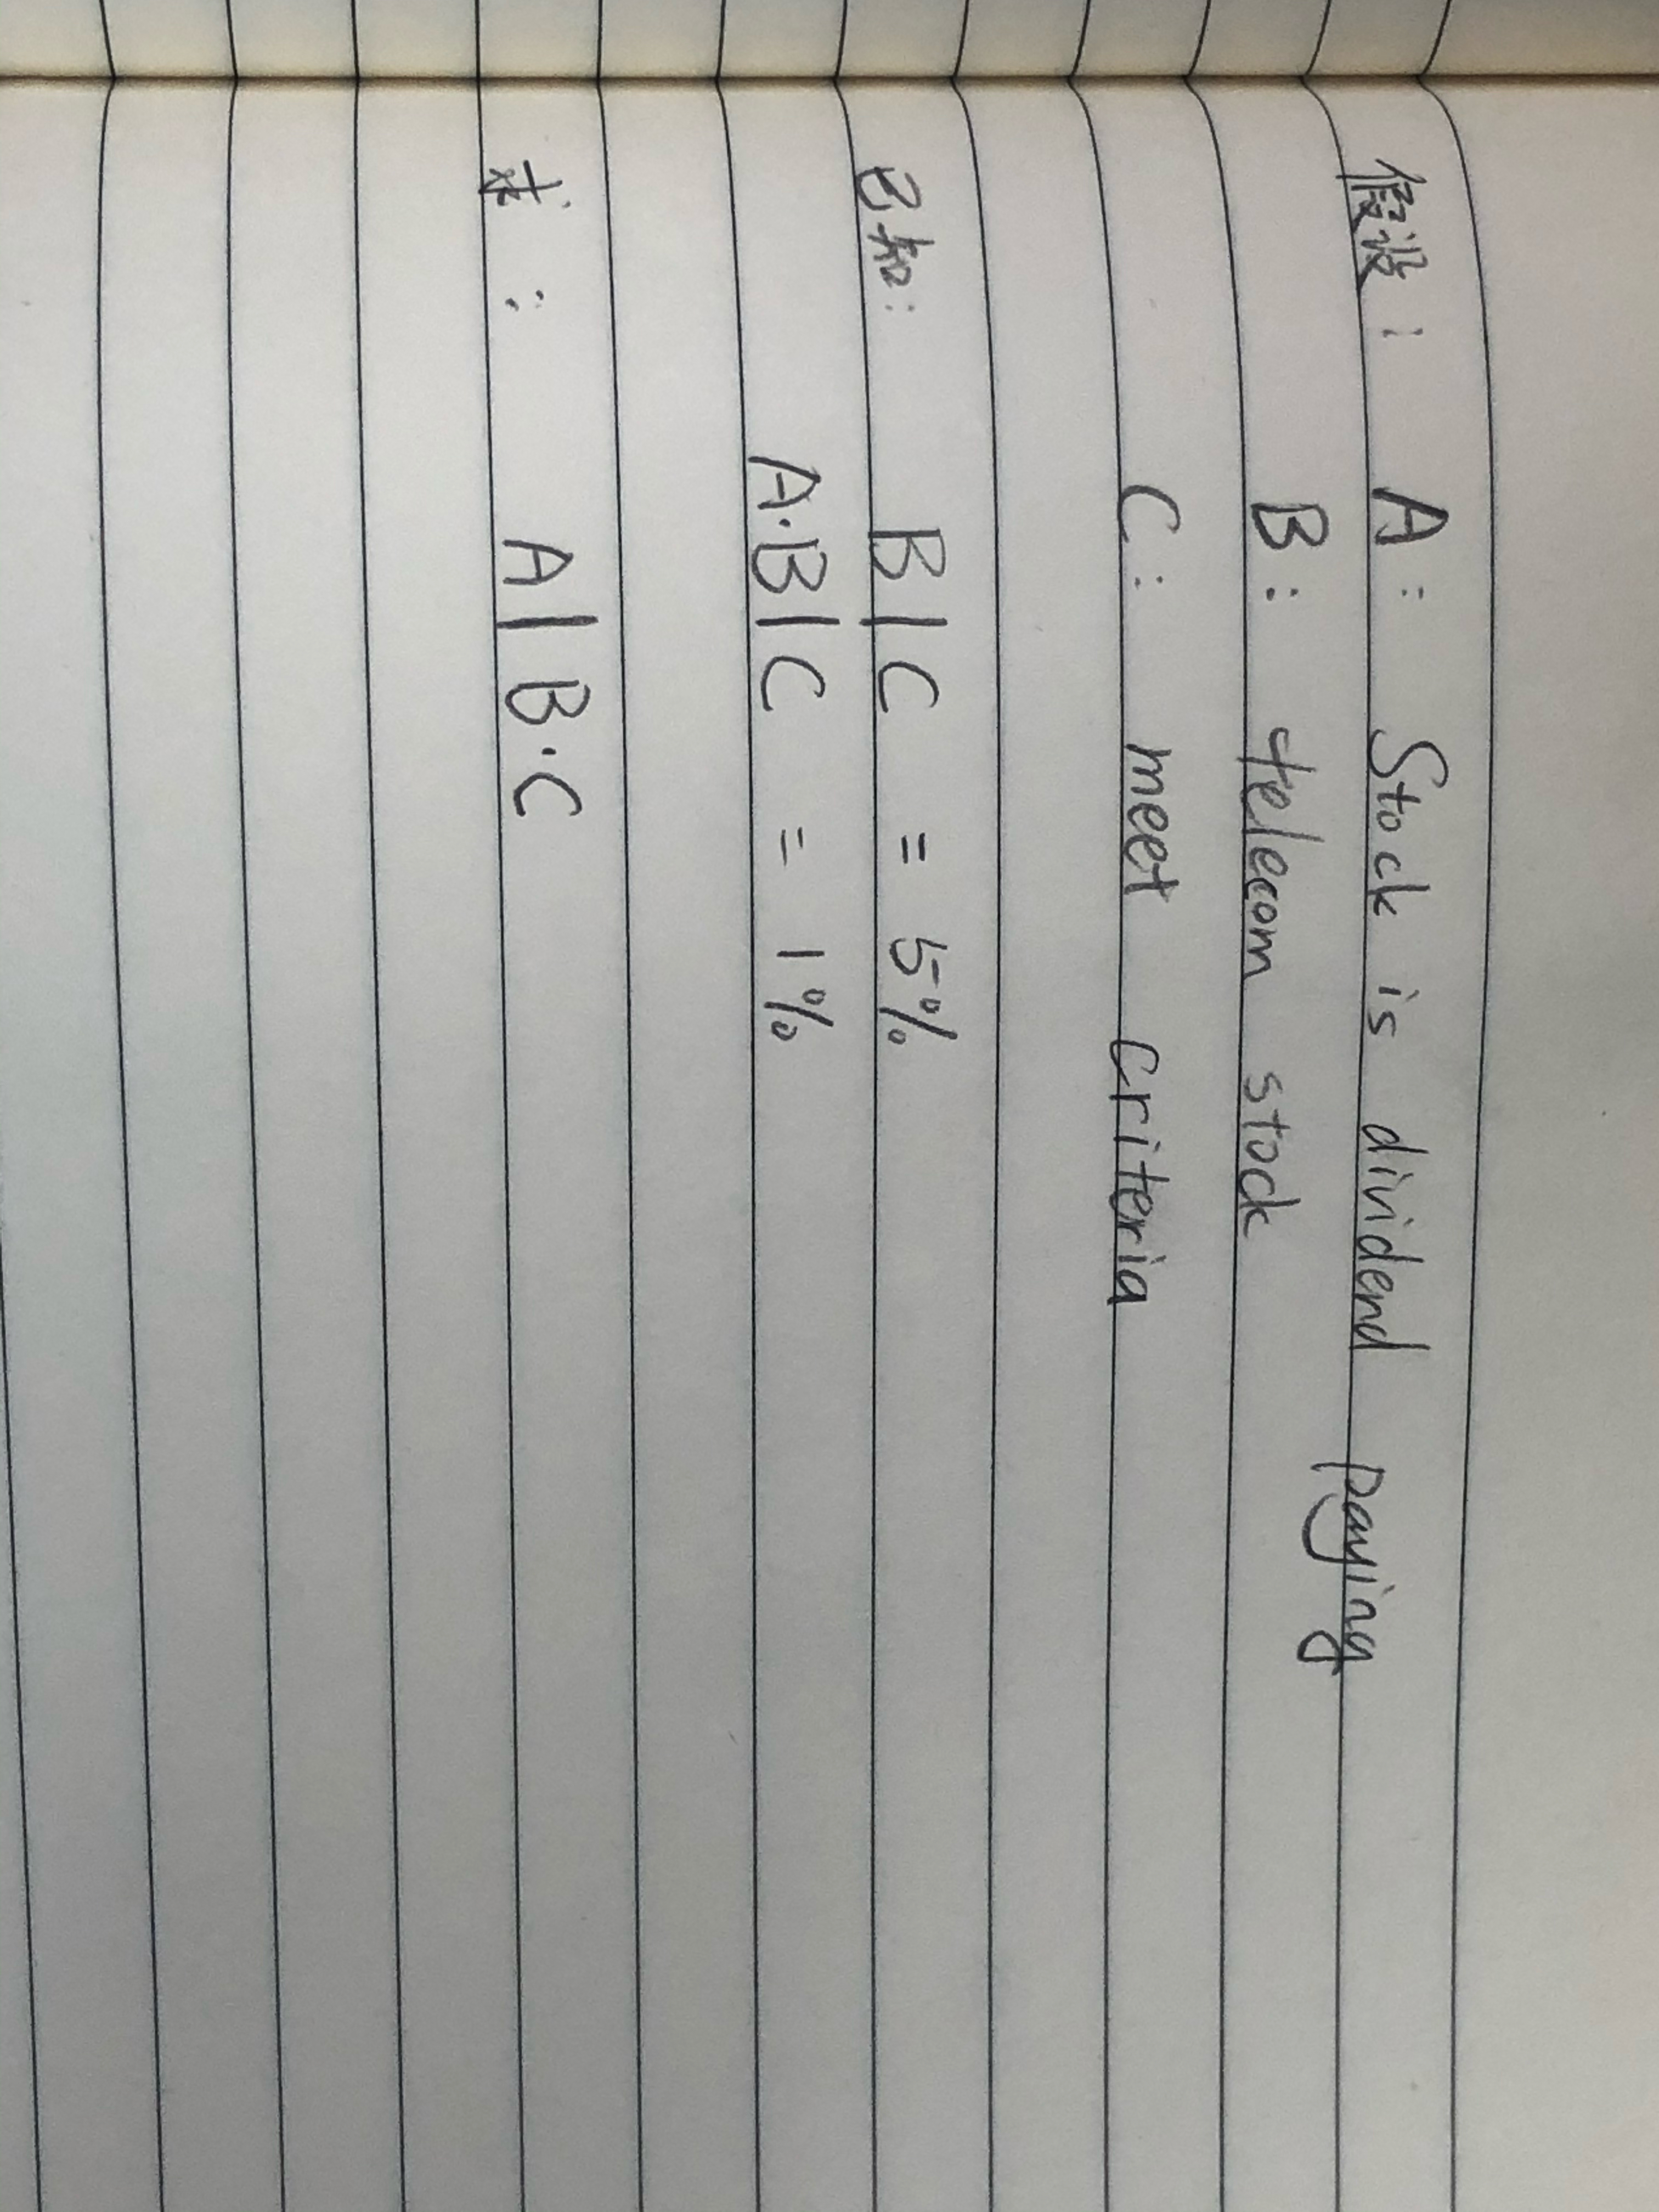 假设: A: Stock is dividend paying
B: telecom stock
C: meet criteria
已知: B|C = 5%
A·B|C = 1%
求: A|B·C